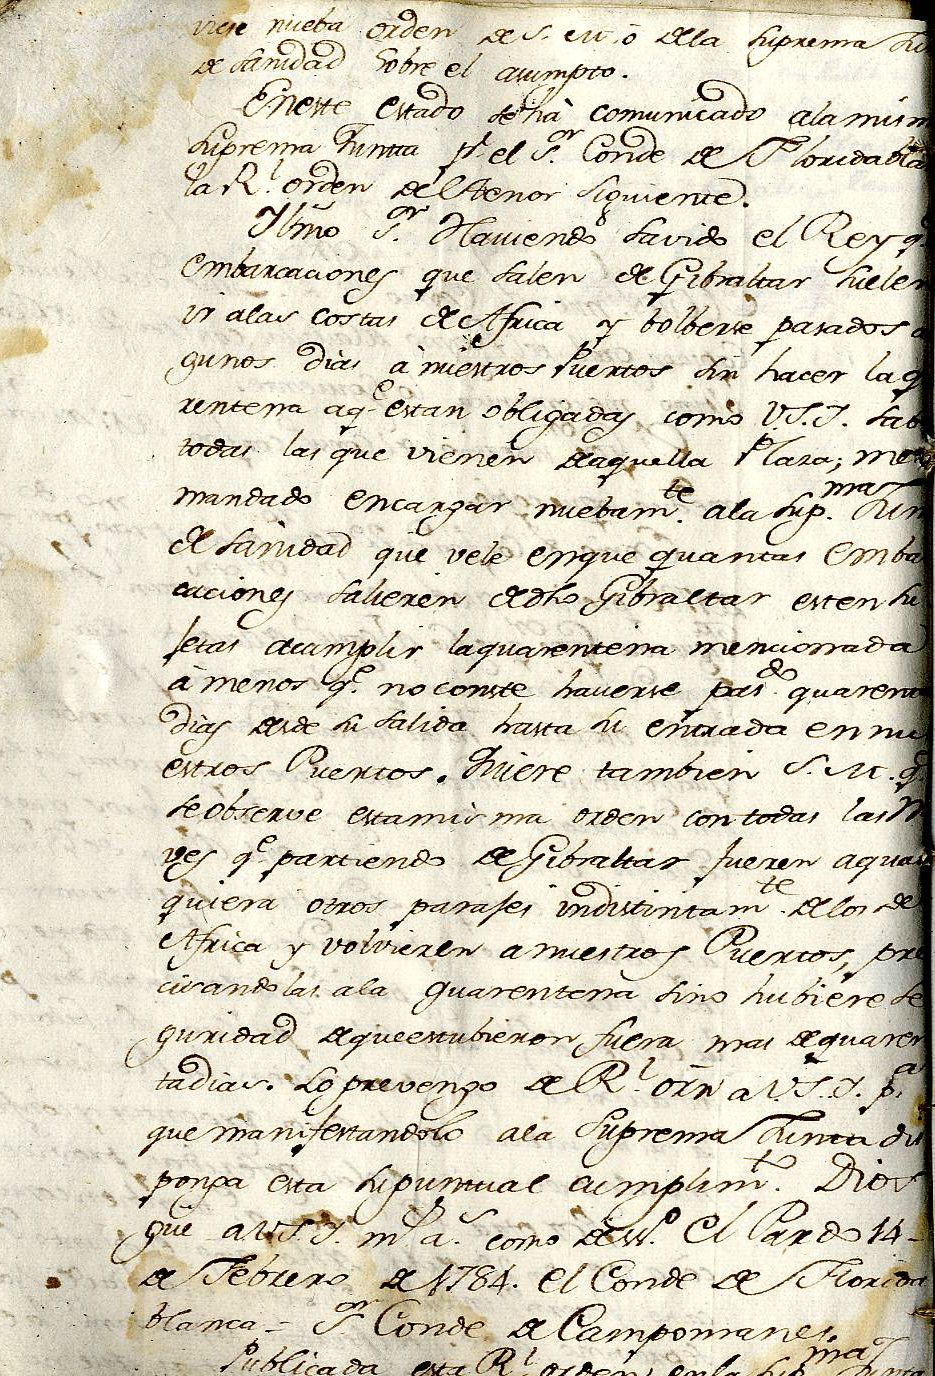 viese nueba orden de S. M. o dela Suprema Ju
de Sanidad Sobre el asumpto.
Eneste estado se hà comunicado ala mism
Suprema Junta pr. el Sor. Conde de Florida bla
la Rl. orden del tenor siguiente.
Yllmo Sor. Haviendo savido el Rey qe
embarcaciones que salen de Gibraltar suelen
ir alas costas de Africa y bolberse pasados a
gunos dias à nuestros Puertos sin hacer la q
rentena aqe. estan obligadas como V.S.I. sabe
todas las que vienen deaquella Plaza; me
mandado encargar nuebamte. ala Supma. Jun
de Sanidad que vele enque quantas emba
caciones salieren dedho Gibraltar esten su
jetas acumplir laquarentena mencionada
à menos qe. no conste haverse pasdo. quarent
dias desde su salida hasta su entrada en nu
estros Puertos. Quiere tambien S. M. qe.
se observe estamisma orden con todas las N
ves qe. partiendo de Gibraltar fueren aquales
quiera otros parajes indistintamte. delos de
Africa y volvieren a nuestros Puertos, pre
cisandolas ala quarentena sino hubiere se
guridad deque estubieron fuera mas de quaren
tadias. Lo prevengo de Rl. orn a V.S.I. pa.
que manifestandolo ala Suprema Junta dis
ponga esta su puntual cumplimto. Dios
gue a V.S.I. ms. as. como deso. El Pardo 14
de Febrero de 1784. el Conde de Florida
blanca = Sor. Conde de Campomanes.
Publicada esta Rl. orden enla Supma. Junta